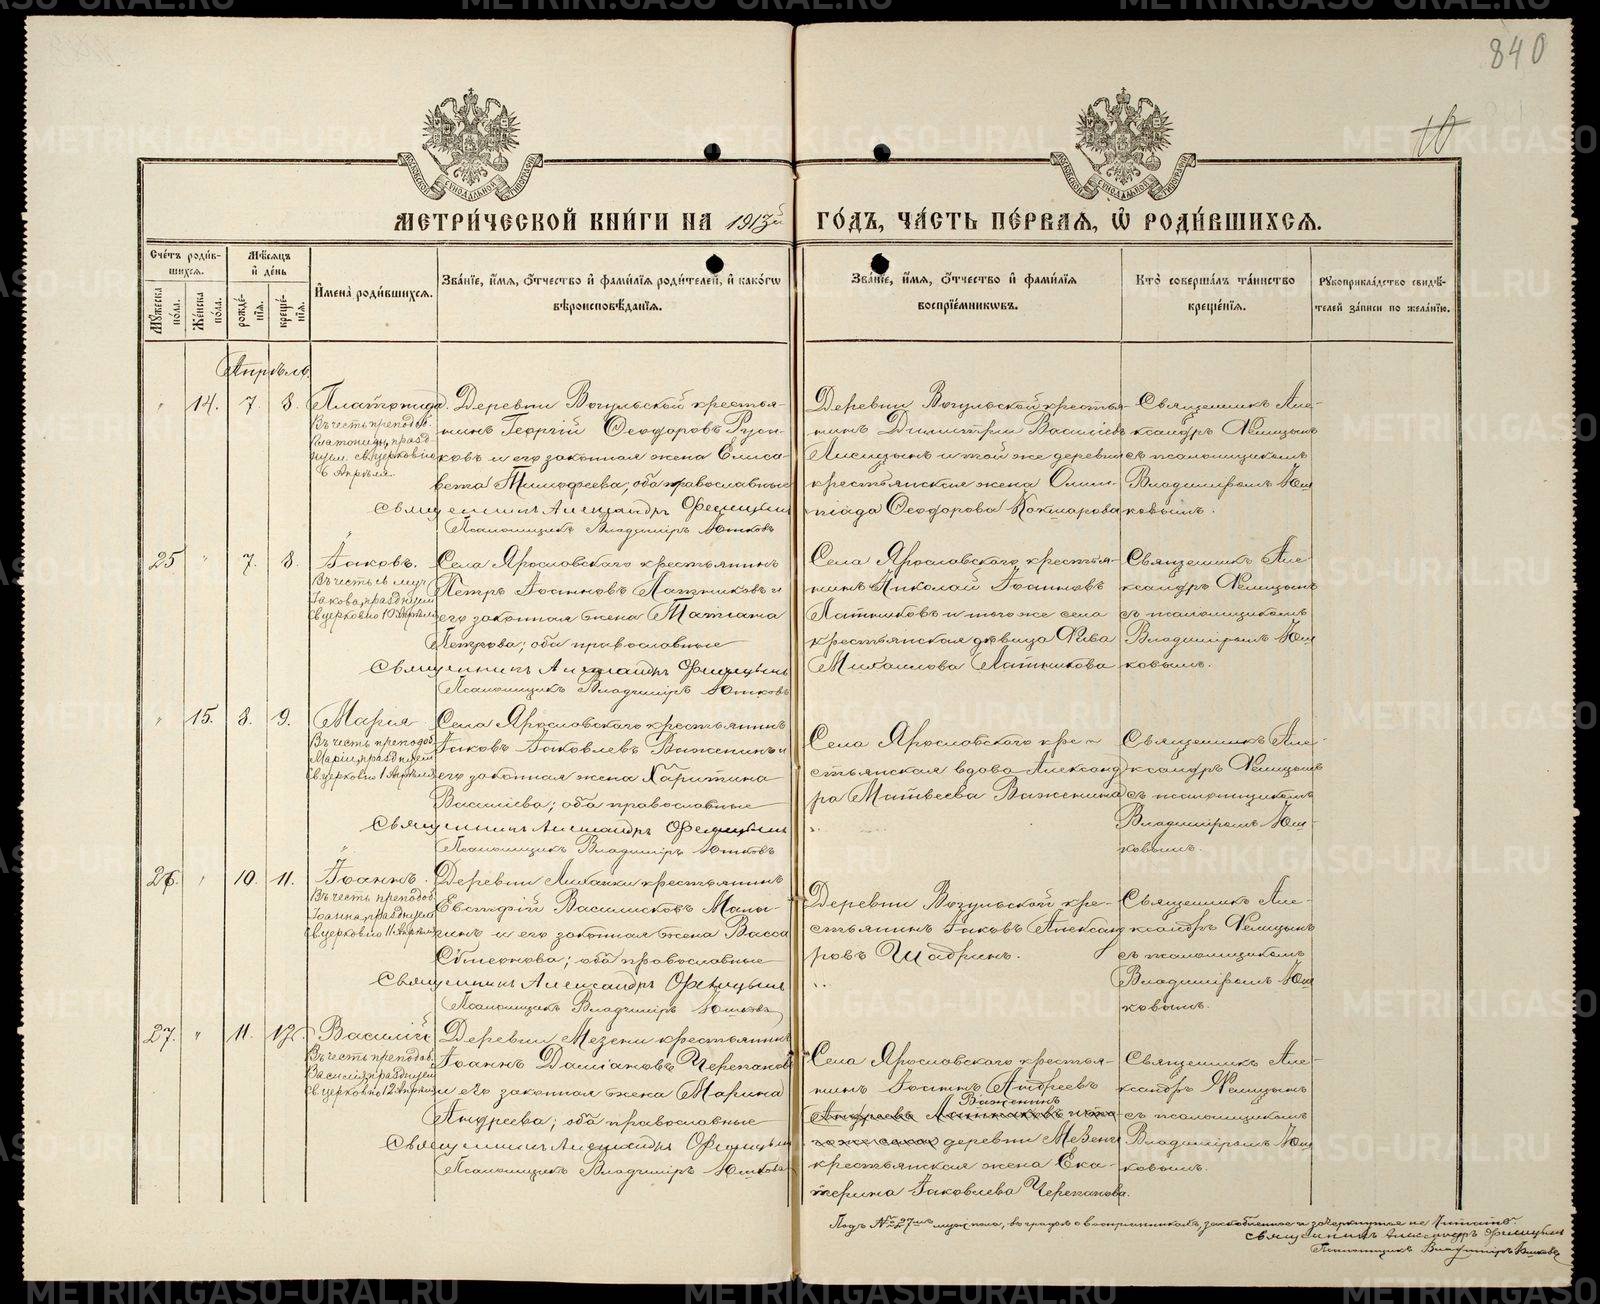 840
10
МЕТРИ́ЧЕСКОЙ КНИ́ГИ НА 1913й ГО́ДЪ, ЧА́СТЬ ПЕ́РВАЯ, Ѽ РОДИ́ВШИХСЯ.
Сче́тъ роди́вшихся.
Мꙋ́жеска по́ла.
Же́нска по́ла.
Мѣ́сяцъ и де́нь
рожде́нїя.
креще́нїя.
И҆мена̀ роди́вшихся.
Зва́нїе, и҆́мя, ѻ҆́тчество и҆ фами́лїя роди́телей, и҆ како́гѡ
вѣроисповѣ́данїя.
Зва́нїе, и҆́мя, ѻ҆́тчество и҆ фами́лїя
воспрїе́мникѡвъ.
Кто̀ соверша́лъ та́инство
креще́нїя.
Рꙋкоприкла́дство свидѣ́-
телей за́писи по жела́нїю.
Апрѣль.
" 14. 7. 8. Платонида.
Въ честь преподоб.
Платониды, празд-
нуем. св. церковію
6 Апрѣля.
Деревни Вогульской крестья-
нинъ Георгій Ѳеодоровъ Руси-
ковъ и его законная жена Елиса-
вета Тимофеева; оба православные
Священникъ Александръ Фелицынъ
Псаломщикъ Владиміръ Юшковъ
Деревни Вогульской крестья-
нинъ Димитрій Васильевъ
Лисицынъ и той же деревни
крестьянская жена Олим-
піада Ѳеодорова Кокшарова
Священникъ Але-
ксандръ Фелицынъ
съ псаломщикомъ
Владиміромъ Юш-
ковымъ.
25 " 7. 8. Іаковъ.
Въ честь св. муч.
Іакова, празднуем.
св. церковію 10 Апрѣля
Села Ярославскаго крестьянинъ
Петръ Іоанновъ Латниковъ и
его законная жена Татіана
Петрова; оба православные
Священникъ Александръ Фелицынъ
Псаломщикъ Владиміръ Юшковъ
Села Ярославскаго крестья-
нинъ Николай Іоанновъ
Латниковъ и того же села
крестьянская дѣвица Фива
Михаилова Латникова
Священникъ Але-
ксандръ Фелицынъ
съ псаломщикомъ
Владиміромъ Юш-
ковымъ.
" 15. 8. 9. Марія
Въ честь преподоб.
Маріи, празднуем
св. церковію 1 Апрѣля
Села Ярославскаго крестьянинъ
Іаковъ Іаковлевъ Важенинъ и
его законная жена Харитина
Василіева; оба православные
Священникъ Александръ Фелицынъ
Псаломщикъ Владиміръ Юшковъ
Села Ярославскаго кре-
стьянская вдова Александ-
ра Матвеева Важенина
Священникъ Але-
ксандръ Фелицынъ
съ псаломщикомъ
Владиміромъ Юш-
ковымъ.
26. " 10. 11. Іоаннъ.
Въ честь преподоб.
Іоанна, празднуем
св. церковію 11 Апрѣля
Деревни Лихачки крестьянинъ
Евстафій Василисковъ Малы-
гинъ и его законная жена Васса
православные
Священникъ Александръ Фелицынъ
Псаломщикъ Владиміръ Юшковъ
Деревни Вогульской кре-
стьянинъ Іаковъ Александ-
ровъ Шадринъ.
Священникъ Але-
ксандръ Фелицынъ
съ псаломщикомъ
Владиміромъ Юш-
ковымъ.
27. " 11. 12. Василій
Въ честь преподоб.
Василія, празднуем
св. церковію 12 Апрѣля
Деревни Мезени крестьянинъ
Іоаннъ Даміановъ Черепановъ
и его законная жена Марина
Андреева; оба православные
Священникъ Александръ Фелицынъ
Псаломщикъ Владиміръ Юшковъ
Села Ярославскаго крестья-
нинъ Іоаннъ Андреевъ
Важенинъ
Андреевъ Латниковъ
деревни Мезени
крестьянская жена Ека-
терина Іаковлева Черепанова.
Священникъ Але-
ксандръ Фелицынъ
съ псаломщикомъ
Владиміромъ Юш-
ковымъ.
Подъ № 27мъ муж. пола, въ графѣ о воспріемникахъ, заскобленное и зачеркнутое не читать.
Священникъ Александръ Фелицынъ
Псаломщикъ Владиміръ Юшковъ
METRIKI.GASO-URAL.RU